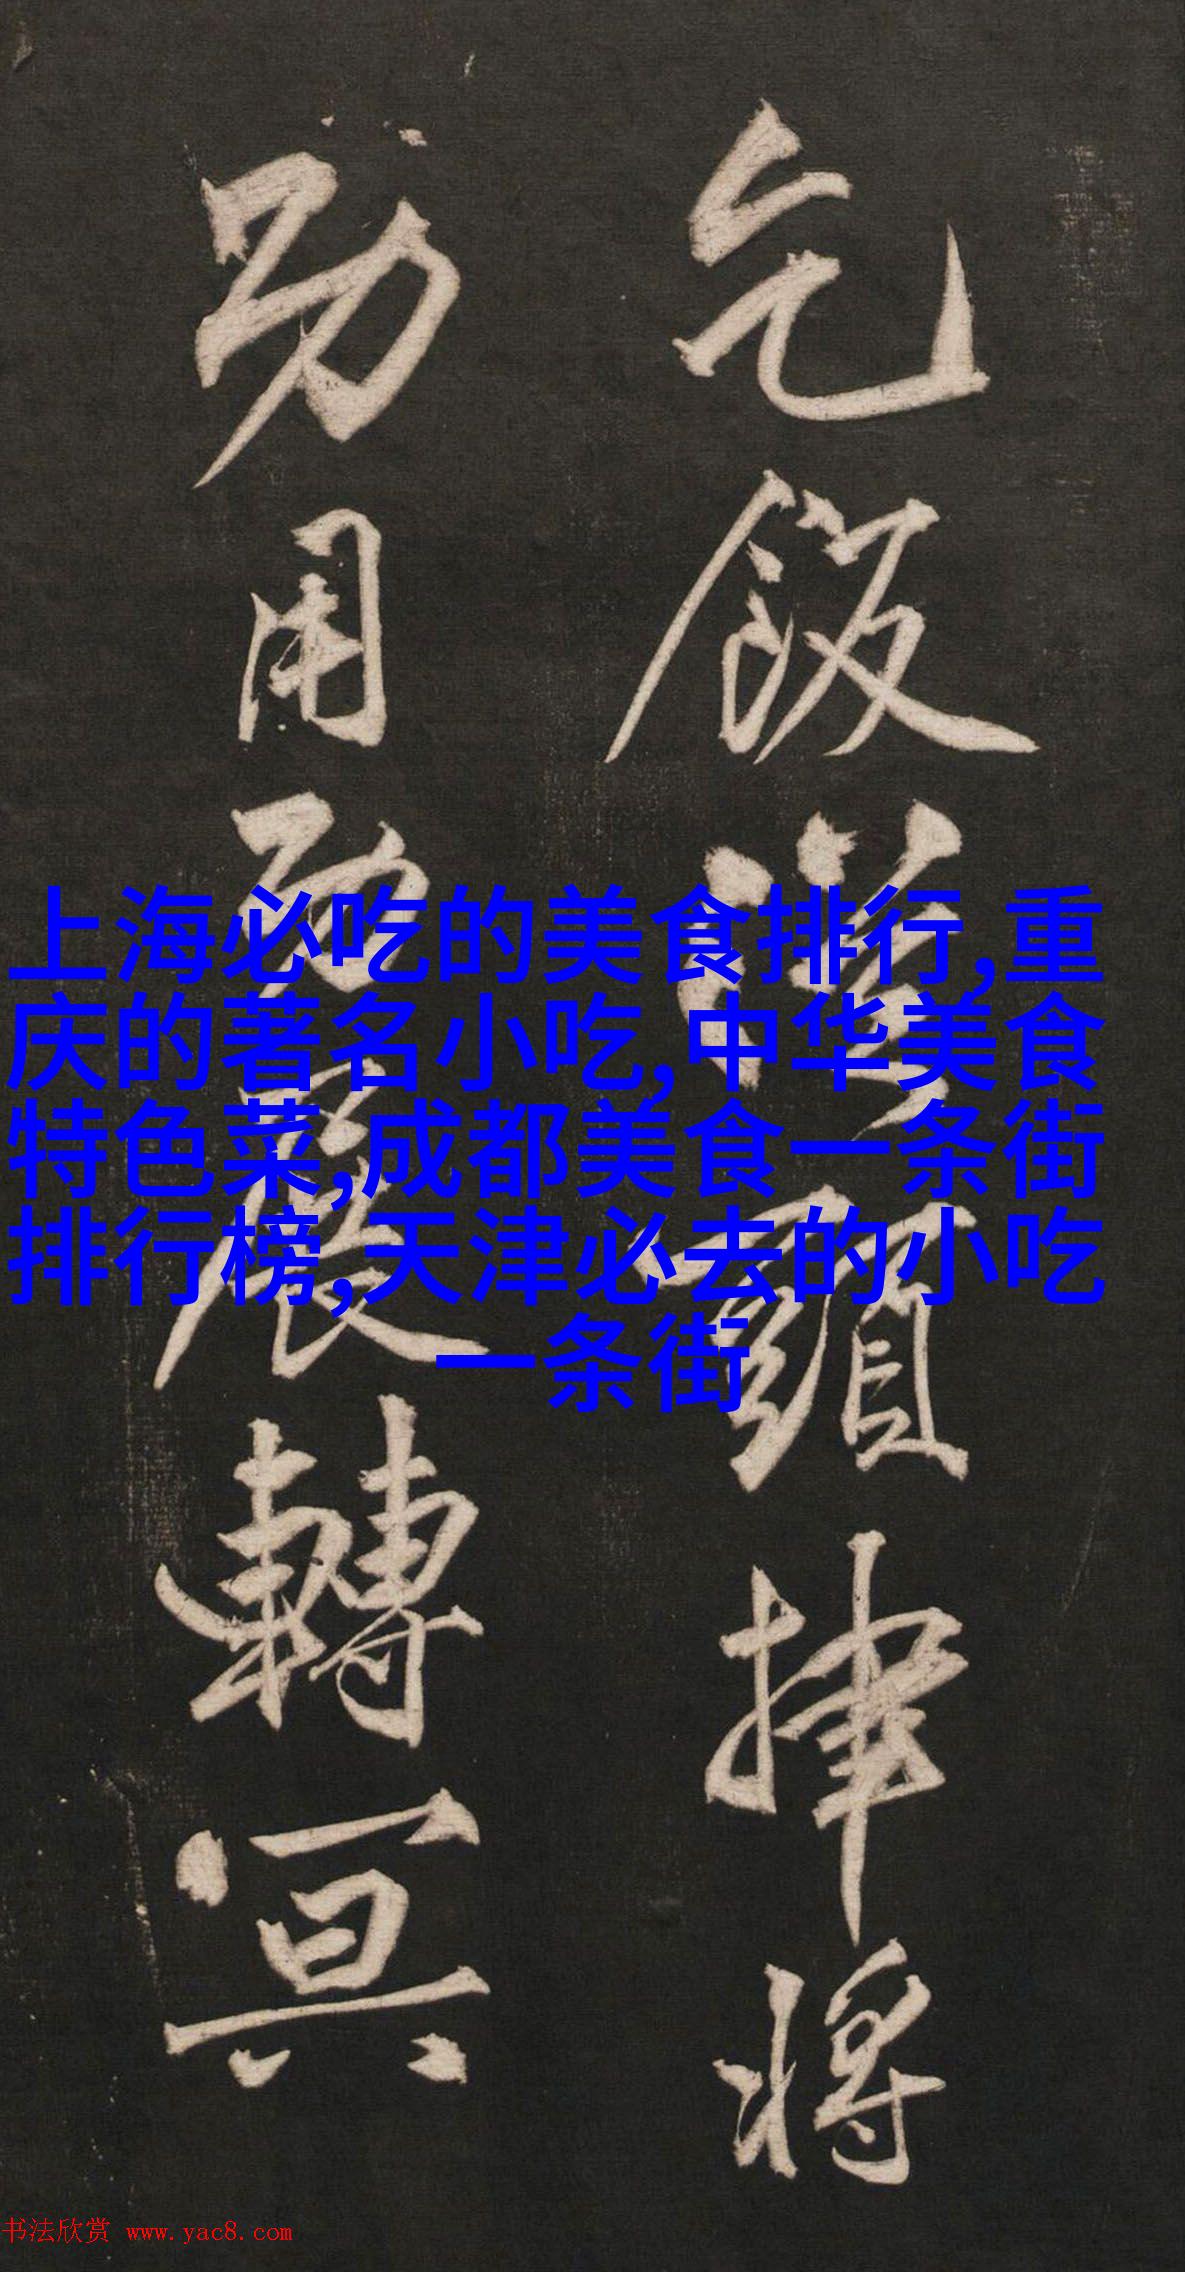 乞飯頭將
功用展轉冥
上海必吃的美食排行,重
庆的著名小吃,中华美食
特色菜,成都美食一条街
排行榜,天津必去的小吃
一条街
书法欣赏 www.yac8.com